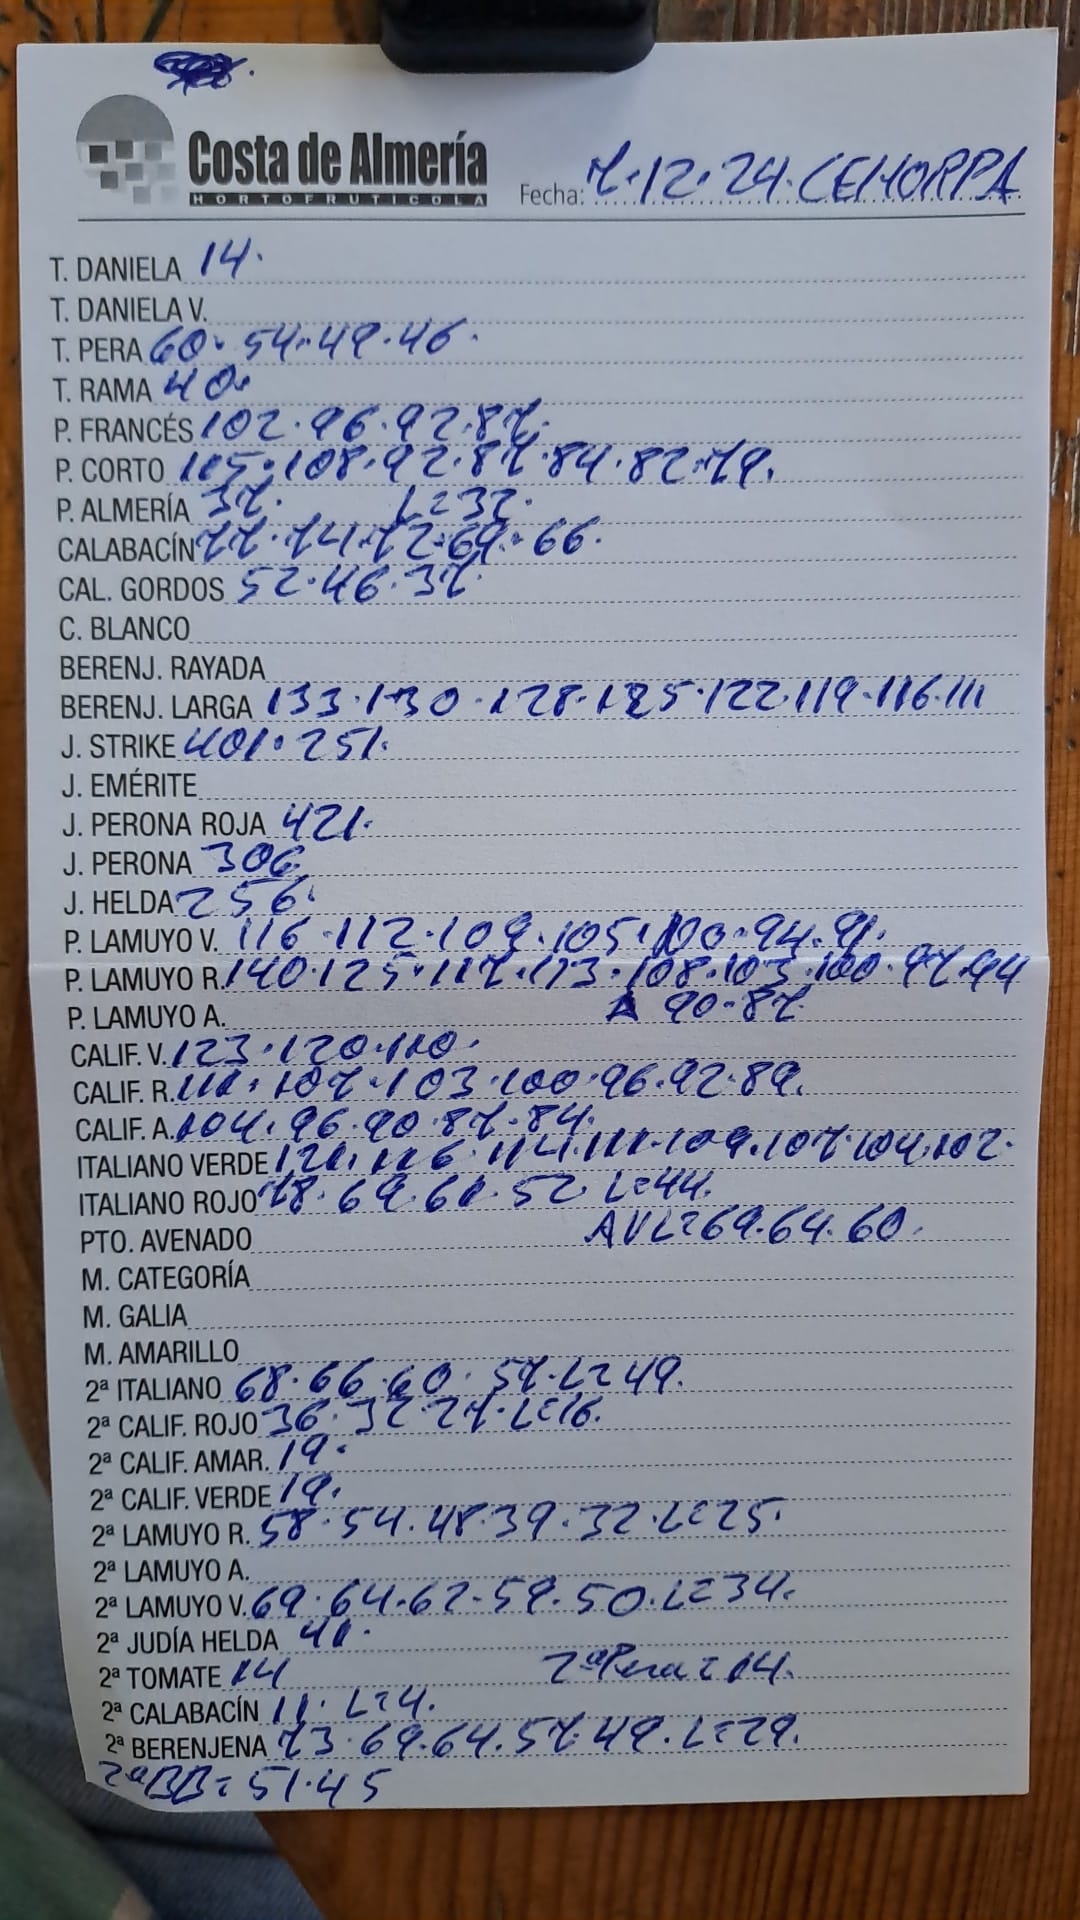 Costa de Almería
HORTOFRUTICOLA
Fecha: 7.12.24. CEHORPA
T. DANIELA 14.
T. DANIELA V.
T. PERA 60. 54. 49. 46.
T. RAMA 40.
P. FRANCÉS 102. 96. 92. 87.
P. CORTO 115. 108. 92. 87. 84. 82. 79.
P. ALMERÍA 37. L=32.
CALABACÍN 77. 74. 72. 69. 66.
CAL. GORDOS 52. 46. 37.
C. BLANCO
BERENJ. RAYADA
BERENJ. LARGA 133. 130. 128. 125. 122. 119. 116. 111
J. STRIKE 401. 251.
J. EMÉRITE
J. PERONA ROJA 421.
J. PERONA 306
J. HELDA 256.
P. LAMUYO V. 116. 112. 109. 105. 100. 94. 91.
P. LAMUYO R. 140. 125. 117. 113. 108. 103. 100. 97. 94
P. LAMUYO A. 90. 87.
CALIF. V. 123. 120. 110.
CALIF. R. 111. 107. 103. 100. 96. 92. 89.
CALIF. A. 104. 96. 90. 87. 84.
ITALIANO VERDE 121. 116. 114. 111. 109. 107. 104. 102.
ITALIANO ROJO 78. 69. 61. 52. L=44.
PTO. AVENADO AVL=69. 64. 60.
M. CATEGORÍA
M. GALIA
M. AMARILLO
2ª ITALIANO 68. 66. 60. 57. L=49.
2ª CALIF. ROJO 36. 32. 27. L=16.
2ª CALIF. AMAR. 19.
2ª CALIF. VERDE 19.
2ª LAMUYO R. 58. 54. 48. 39. 32. L=25.
2ª LAMUYO A.
2ª LAMUYO V. 69. 64. 62. 59. 50. L=34.
2ª JUDÍA HELDA 41.
2ª TOMATE 14 2ª Pera=14.
2ª CALABACÍN 11. L=4.
2ª BERENJENA 73. 69. 64. 57. 49. L=29.
2ª BB= 51. 45